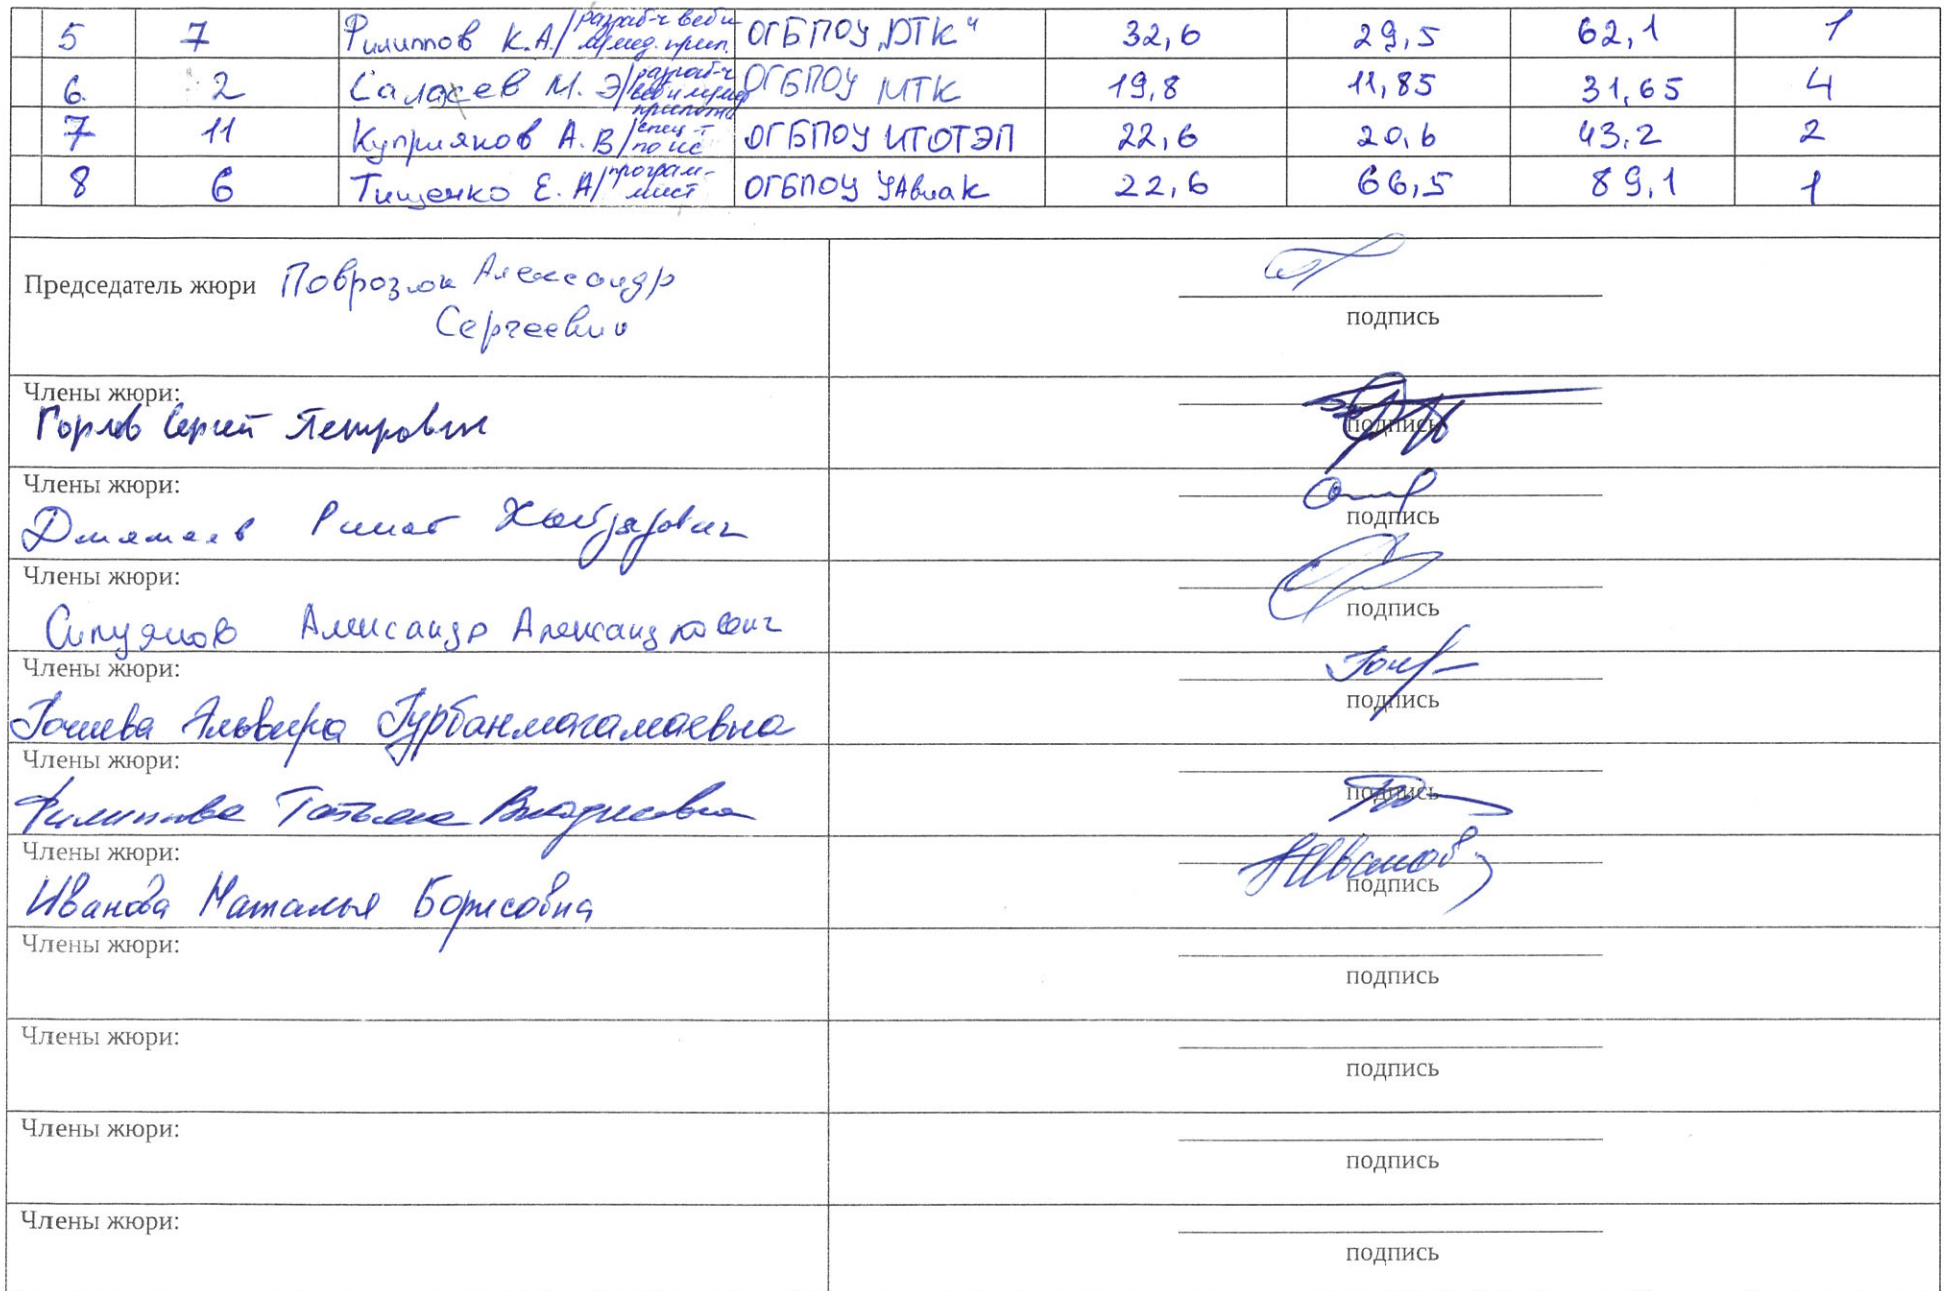 5 7 Филиппов К.А/ разраб-ч веб и м/мед. прил. ОГБПОУ „ДТК“ 32,6 29,5 62,1 1
6. 2 М. Э/ разраб-ч ОГБПОУ МТК 19,8 11,85 31,65 4
7 11 Куприянов А.В/ спец-т по ис ОГБПОУ ИТОТЭП 22,6 20,6 43,2 2
8 6 Тищенко Е.А/ програм-мист ОГБПОУ УАвиаК 22,6 66,5 89,1 1
Председатель жюри Александр
Сергеевич
подпись
Члены жюри:
Сергей Петрович
подпись
Члены жюри:
Ринат
подпись
Члены жюри:
Александр Александрович
подпись
Члены жюри:
Гочиева Эльвира Гурбанмагамаевна
подпись
Члены жюри:
Филиппова Татьяна
подпись
Члены жюри:
Иванова Наталья Борисовна
подпись
Члены жюри:
подпись
Члены жюри:
подпись
Члены жюри:
подпись
Члены жюри:
подпись